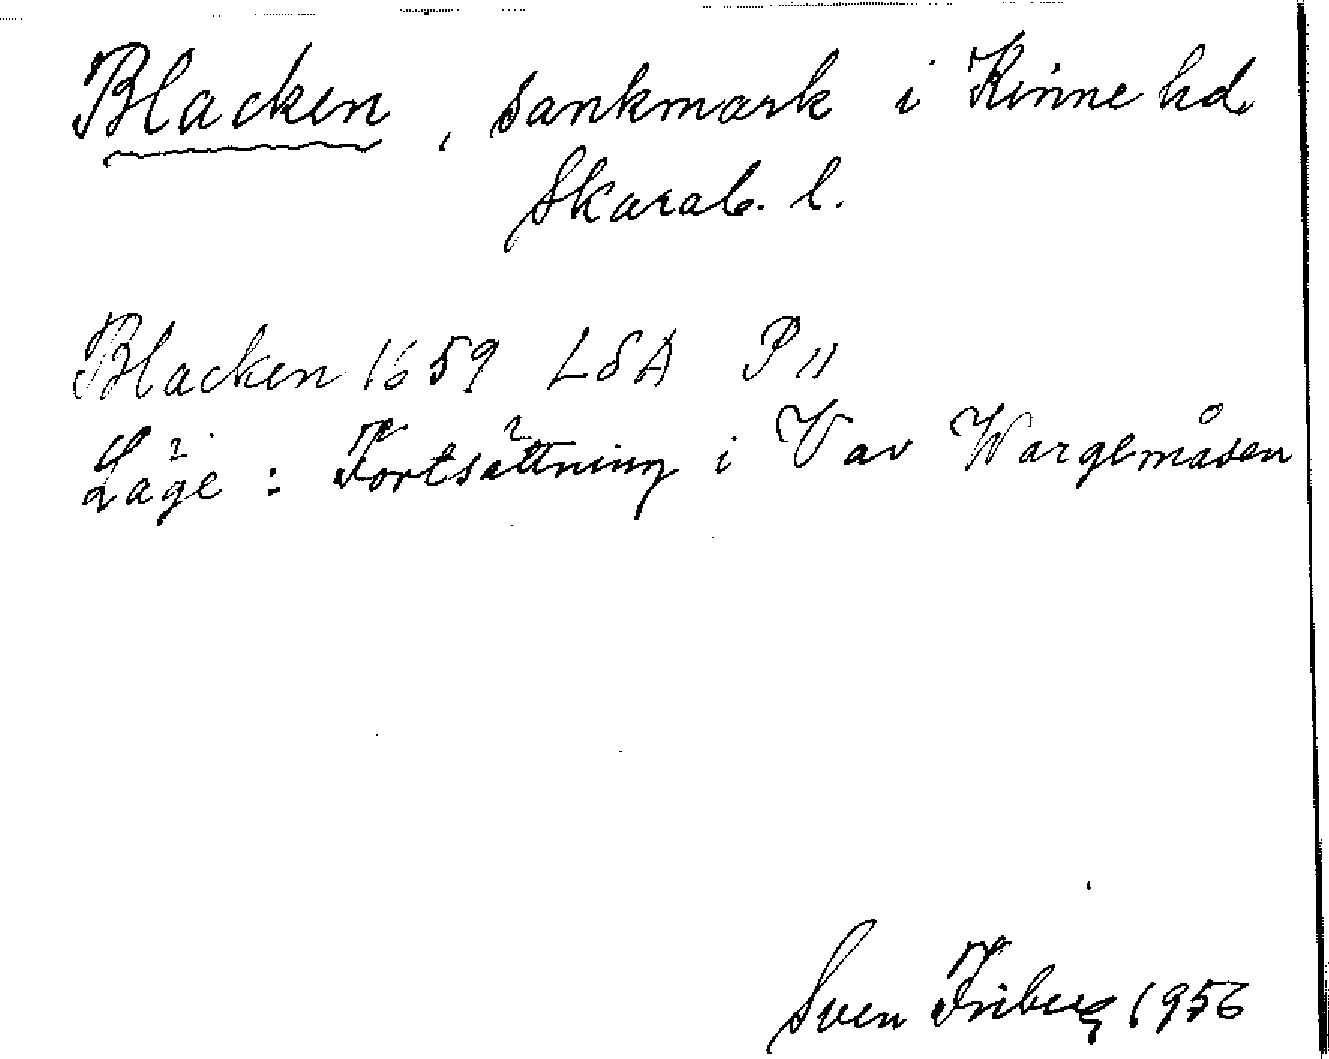 Blacken, sankmark i Kinne hd
Skarab. l.
Blacken 1659 LSA P 11
Läge: Fortsättning i V av Wargemåsen
Sven Friberg 1956